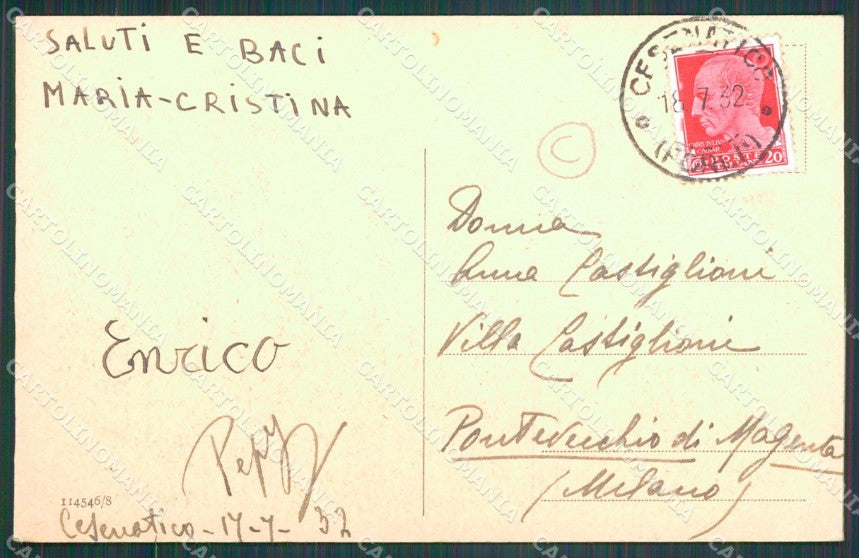 SALUTI E BACI
MARIA-CRISTINA
Enrico
114546/8
Cesenatico - 17-7-32
CESENATICO
18.7.32
(FORLÌ)
20
C
Donna
Anna Castiglioni
Villa Castiglioni
Pontevecchio di Magenta
(Milano)
CARTOLINOMANIA